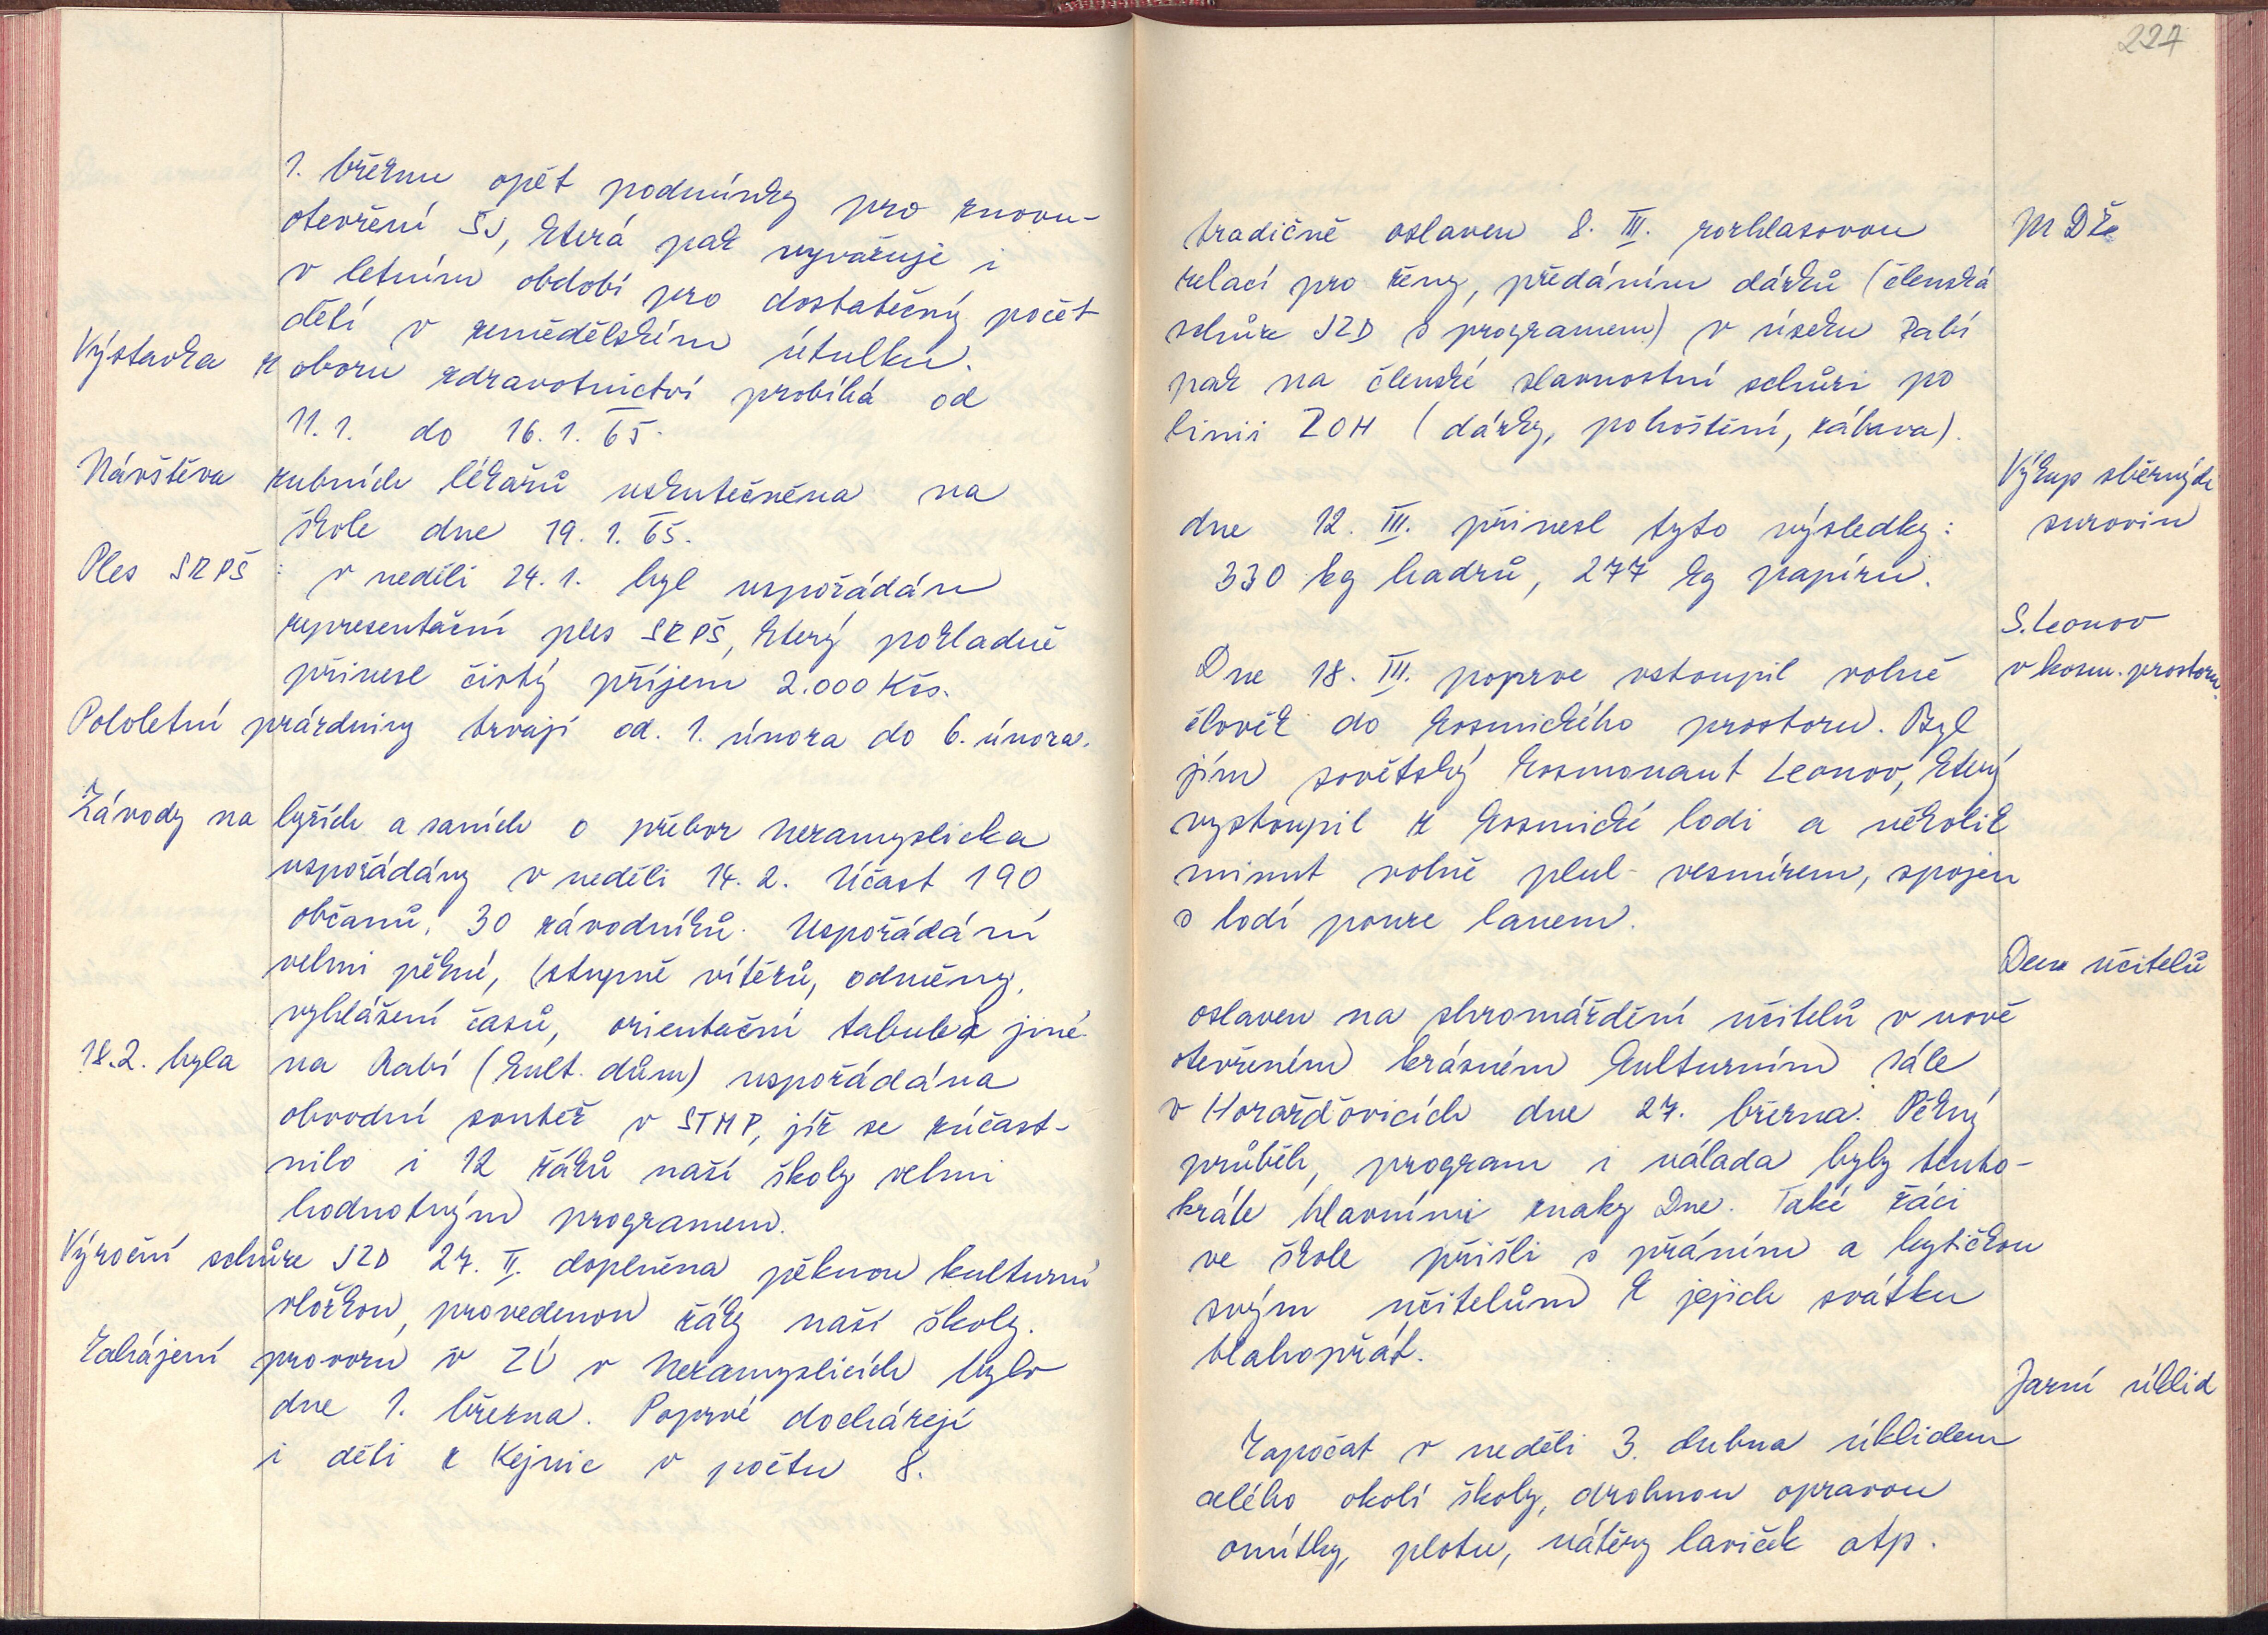 1. březnu opět podmínky pro znovu-
otevření ŠJ, která pak vyvařuje i
v letním období pro dostatečný počet
dětí v zemědělském útulku.
Výstavka z oboru zdravotnictví probíhá od
11. 1. do 16. 1. 65.
Návštěva zubních lékařů uskutečněna na
škole dne 19. 1. 65.
Ples SRPŠ: v neděli 24. 1. byl uspořádán
representační ples SRPŠ, který pokladně
přinesl čistý příjem 2.000 Kčs.
Pololetní prázdniny trvají od. 1. února do 6. února.
Závody na lyžích a saních o přebor Nezamyslicka
uspořádány v neděli 14. 2. Účast 190
občanů, 30 závodníků. Uspořádání
velmi pěkné, (stupně vítězů, odměny,
vyhlášení časů, orientační tabule a jiné
18. 2. byla na Rabí (kult. dům) uspořádána
obvodní soutěž v STMP, jíž se zúčast-
nilo i 12 žáků naší školy velmi
hodnotným programem.
Výroční schůze JZD 27. II. doplněna pěknou kulturní
vložkou, provedenou žáky naší školy.
Zahájení provozu v ZÚ v Nezamyslicích bylo
dne 1. března. Poprvé docházejí
i děti z Kejnic v počtu 8.
227
MDŽe
tradičně oslaven 8. III. rozhlasovou
relací pro ženy, předáním dárků (členská
schůze JZD s programem) v úseku Rabí
pak na členské slavnostní schůzi po
linii ROH (dárky, pohoštění, zábava).
Výkup sběrných
surovin
dne 12. III. přinesl tyto výsledky:
330 kg hadrů, 277 kg papíru.
S. Leonov
v kosm. prostoru.
Dne 18. III. poprve vstoupil volně
člověk do kosmického prostoru. Byl
jím sovětský kosmonaut Leonov, který
vystoupil z kosmické lodi a několik
minut volně plul vesmírem, spojen
s lodí pouze lanem.
Den učitelů
oslaven na shromáždění učitelů v nově
otevřeném krásném kulturním sále
v Horažďovicích dne 27. března. Pěkný
průběh, program i nálada byly tento-
kráte hlavními znaky Dne. Také žáci
ve škole přišli s přáním a kytičkou
svým učitelům k jejich svátku
blahopřát.
Jarní úklid
Započat v neděli 3. dubna úklidem
celého okolí školy, drobnou opravou
omítky, plotu, nátěry laviček atp.